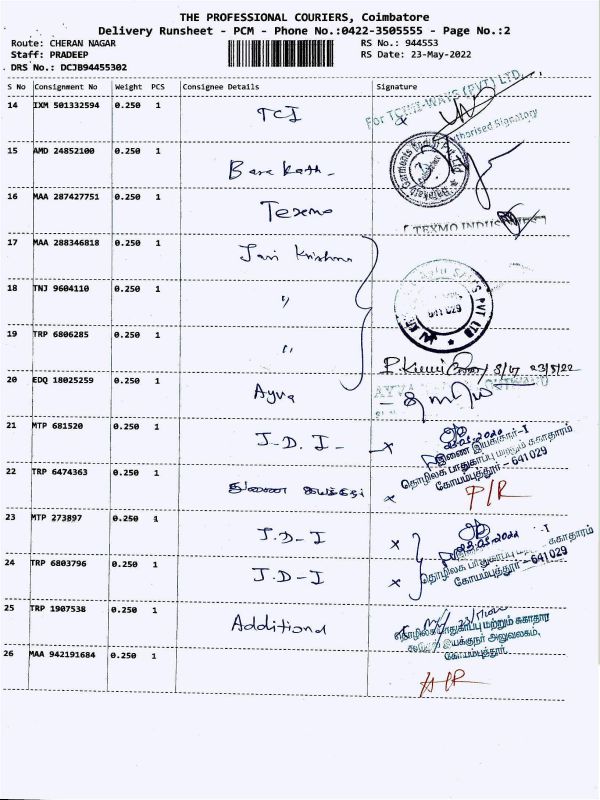 THE PROFESSIONAL COURIERS, Coimbatore
Delivery Runsheet - PCM - Phone No.:0422-3505555 - Page No.:2
Route: CHERAN NAGAR RS No.: 944553
Staff: PRADEEP RS Date: 23-May-2022
DRS No.: DCJB94455302
S No Consignment No Weight PCS Consignee Details Signature
14 IXM 501332594 0.250 1 TCI For TCI HI-WAYS (PVT) LTD.
Authorised Signatory
15 AMD 24852100 0.250 1 Barakath
16 MAA 287427751 0.250 1 Texmo
TEXMO INDUSTRIES
17 MAA 288346818 0.250 1 Jai Krishna
18 TNJ 9604110 0.250 1 "
641 029
19 TRP 6806285 0.250 1 "
23/5/22
20 EDQ 18025259 0.250 1 Ayva
AYVA
21 MTP 681520 0.250 1 J.D.I -
23.05.2022
இணை இயக்குநர்-I
தொழிலக பாதுகாப்பு மற்றும் சுகாதாரம்
கோயம்புத்தூர் - 641 029
22 TRP 6474363 0.250 1 இணை இயக்குநர் P/R
23 MTP 273897 0.250 1 J.D-I
23.05.2022 -I
சுகாதாரம்
24 TRP 6803796 0.250 1 J.D-I
தொழிலக பாதுகாப்பு
கோயம்புத்தூர் - 641 029
25 TRP 1907538 0.250 1 Additional
தொழிலக பாதுகாப்பு மற்றும் சுகாதார
இயக்குநர் அலுவலகம்,
கோயம்புத்தூர்
26 MAA 942191684 0.250 1